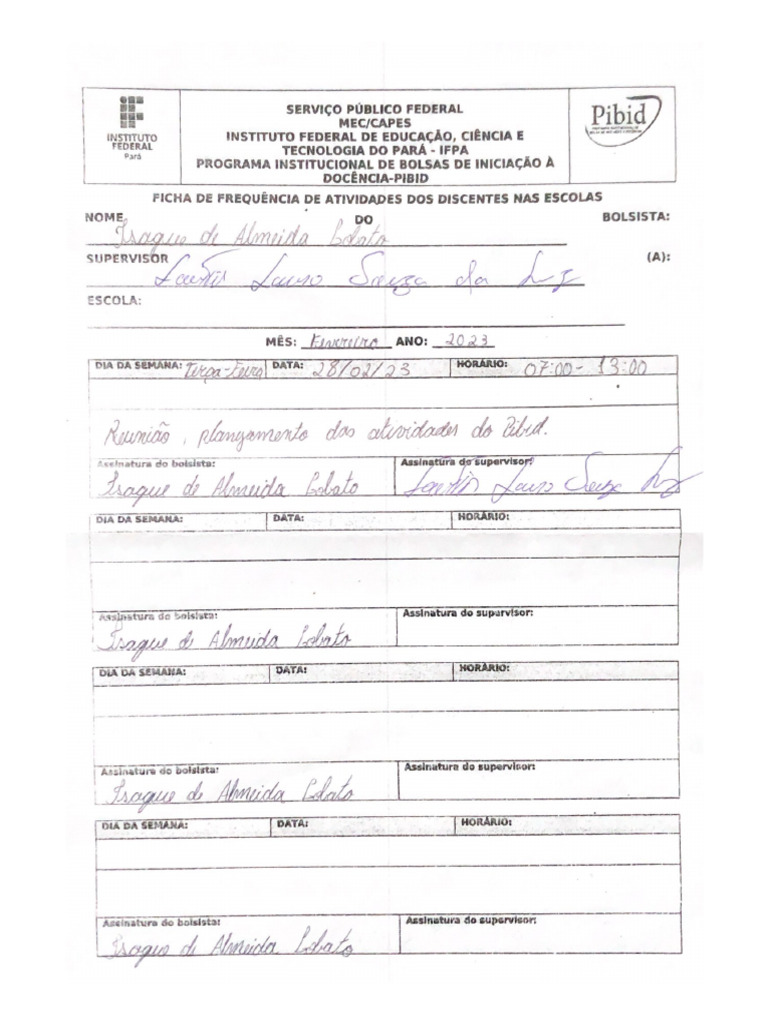 INSTITUTO
FEDERAL
Pará
SERVIÇO PÚBLICO FEDERAL
MEC/CAPES
INSTITUTO FEDERAL DE EDUCAÇÃO, CIÊNCIA E
TECNOLOGIA DO PARÁ - IFPA
PROGRAMA INSTITUCIONAL DE BOLSAS DE INICIAÇÃO À
DOCÊNCIA-PIBID
Pibid
FICHA DE FREQUÊNCIA DE ATIVIDADES DOS DISCENTES NAS ESCOLAS
NOME DO BOLSISTA:
Isaque de Almeida Lobato
SUPERVISOR (A):
Lauro Souza da Luz
ESCOLA:
MÊS: Fevereiro ANO: 2023
DIA DA SEMANA: Terça-Feira DATA: 28/02/23 HORÁRIO: 07:00 - 13:00
Reunião, planejamento das atividades do Pibid.
Assinatura do bolsista: Assinatura do supervisor:
Isaque de Almeida Lobato Lauro Souza Luz
DIA DA SEMANA: DATA: HORÁRIO:
Assinatura do bolsista: Assinatura do supervisor:
Isaque de Almeida Lobato
DIA DA SEMANA: DATA: HORÁRIO:
Assinatura do bolsista: Assinatura do supervisor:
Isaque de Almeida Lobato
DIA DA SEMANA: DATA: HORÁRIO:
Assinatura do bolsista: Assinatura do supervisor:
Isaque de Almeida Lobato